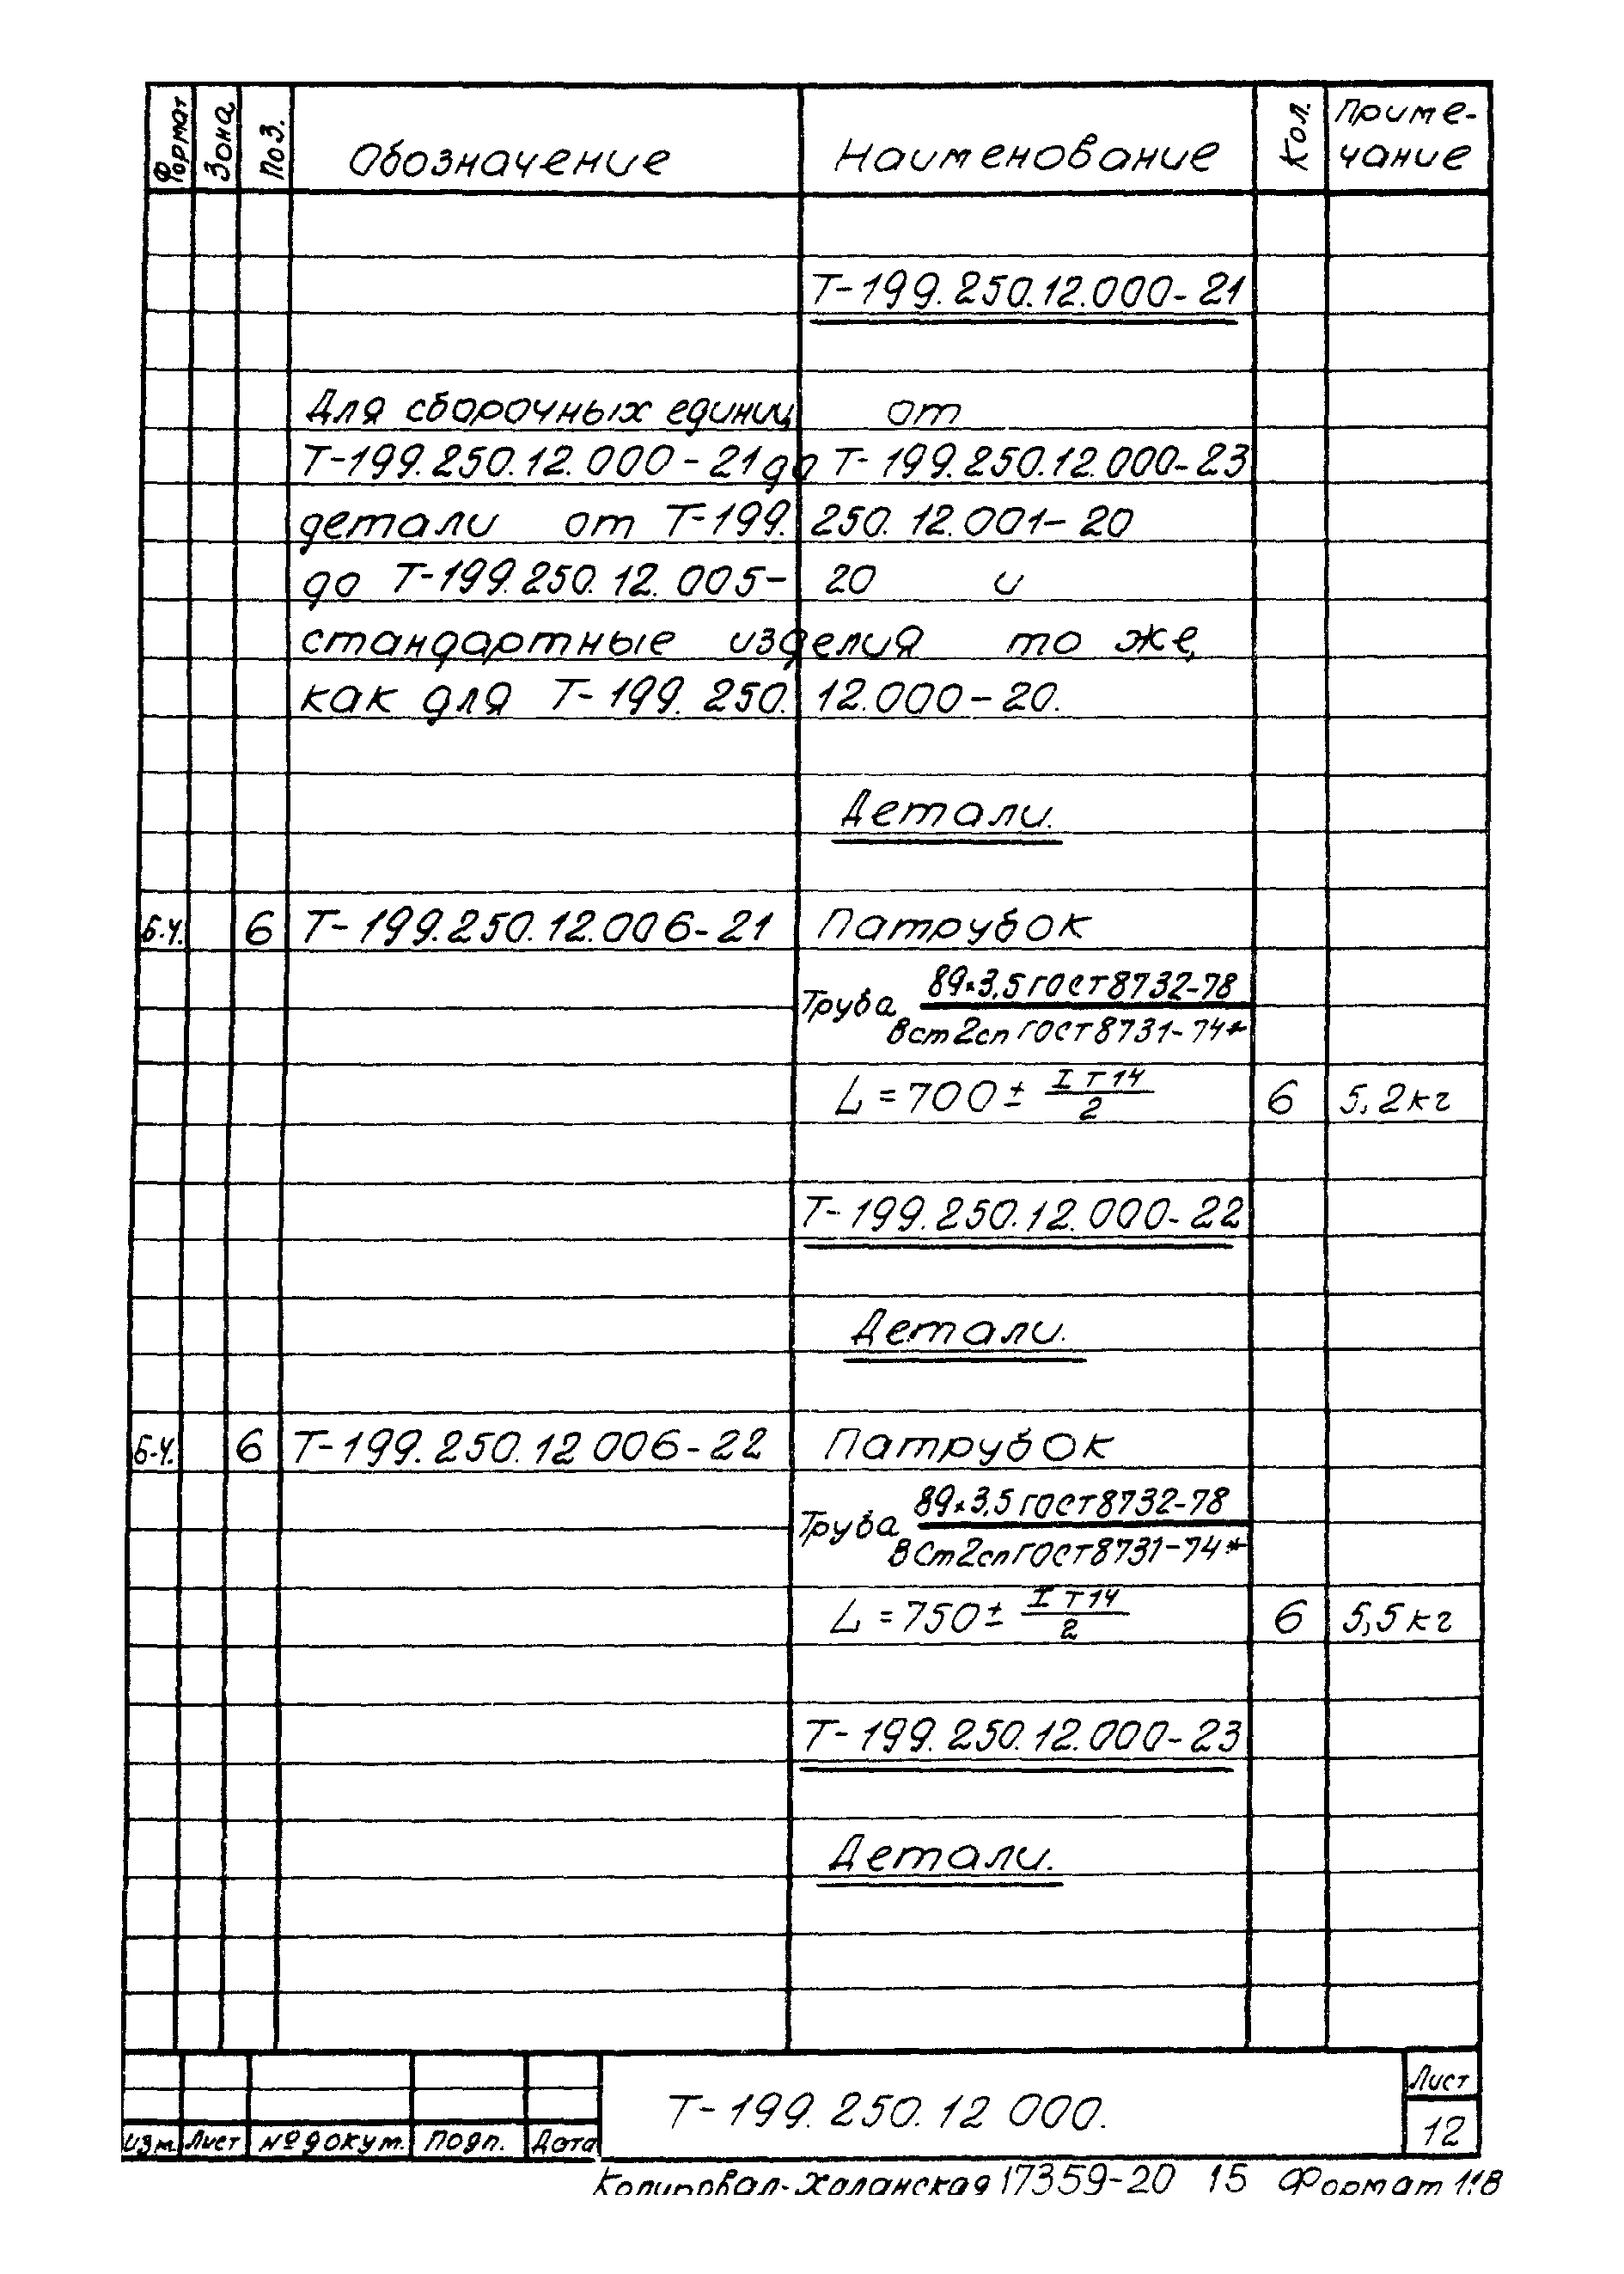 Формат Зона Поз. Обозначение Наименование Кол. Приме-
чание
Т-199.250.12.000-21
Для сборочных единиц от
Т-199.250.12.000-21 до Т-199.250.12.000-23
детали от Т-199.250.12.001-20
до Т-199.250.12.005-20 и
стандартные изделия то же,
как для Т-199.250.12.000-20.
Детали.
Б.Ч. 6 Т-199.250.12.006-21 Патрубок
Труба 89х3,5 ГОСТ 8732-78
ВСт2сп ГОСТ 8731-74*
L=700± IT14/2 6 5,2кг
Т-199.250.12.000-22
Детали.
Б-Ч. 6 Т-199.250.12 006-22 Патрубок
Труба 89х3,5 ГОСТ 8732-78
ВСт2сп ГОСТ 8731-74*
L=750± IT14/2 6 5,5кг
Т-199.250.12.000-23
Детали.
Т-199.250.12 000.
Лист
12
Изм. Лист № докум. Подп. Дата
Копировал-Халанская 17359-20 15 Формат 11.8